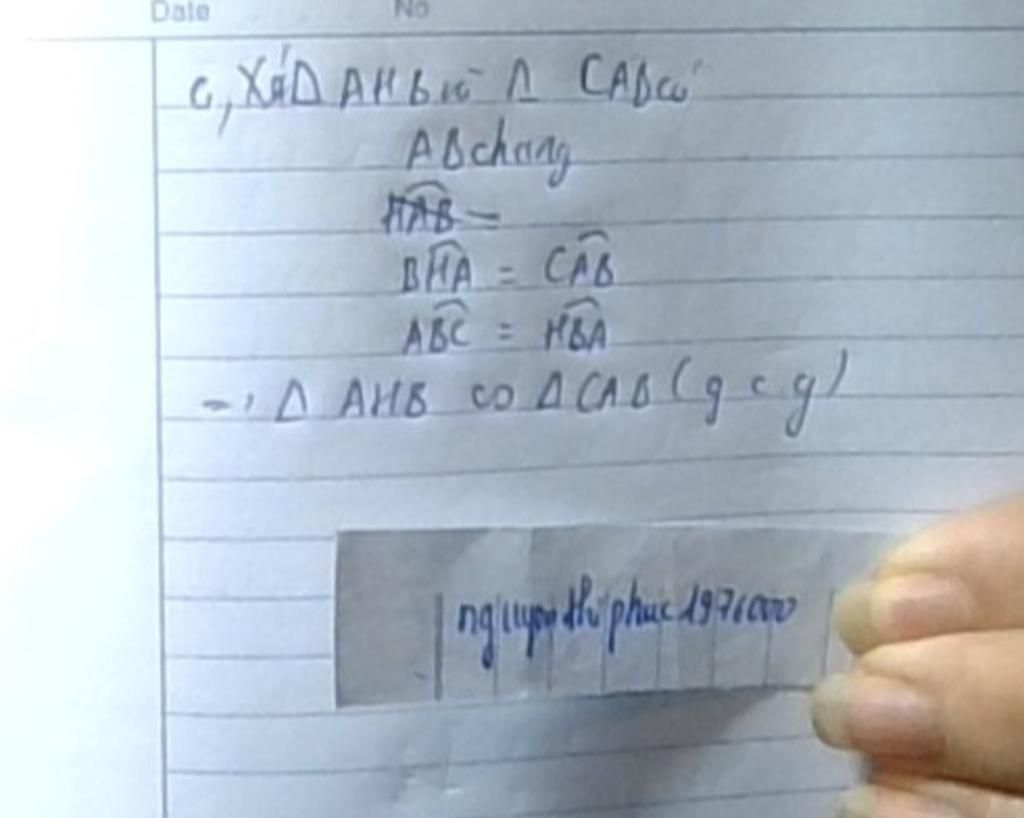 Date No
c, Xét Δ AHB và Δ CAB có
AB chung
HAB =
BHA = CAB
ABC = HBA
→ Δ AHB ∽ Δ CAB (g c g)
nguyenthiphuc1976000